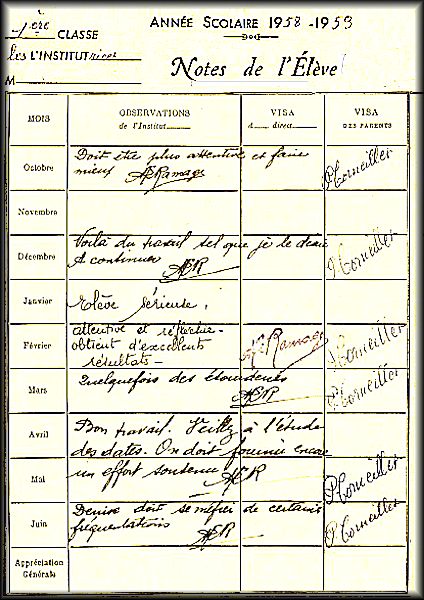 1ère CLASSE
ANNÉE SCOLAIRE 1958-1959
Les L'INSTITutrices
M
Notes de l'Élève
MOIS
OBSERVATIONS
de l'Institut
VISA
d direct
VISA
DES PARENTS
Octobre
Doit être plus attentive et faire
mieux A. Ramage
P Corneiller
Novembre
Décembre
Voilà du travail tel que je le désire
A continuer AR
P Corneiller
Janvier
Elève sérieuse,
Février
attentive et réfléchie -
obtient d'excellents
résultats -
A. Ramage
P Corneiller
Mars
Quelquefois des étourderies
AR
P Corneiller
Avril
Bon travail. Veillez à l'étude
des dates. On doit fournir encore
Mai
un effort soutenu AR
P Corneiller
Juin
Denise doit se méfier de certaines
fréquentations AR
P Corneiller
Appréciation
Générale